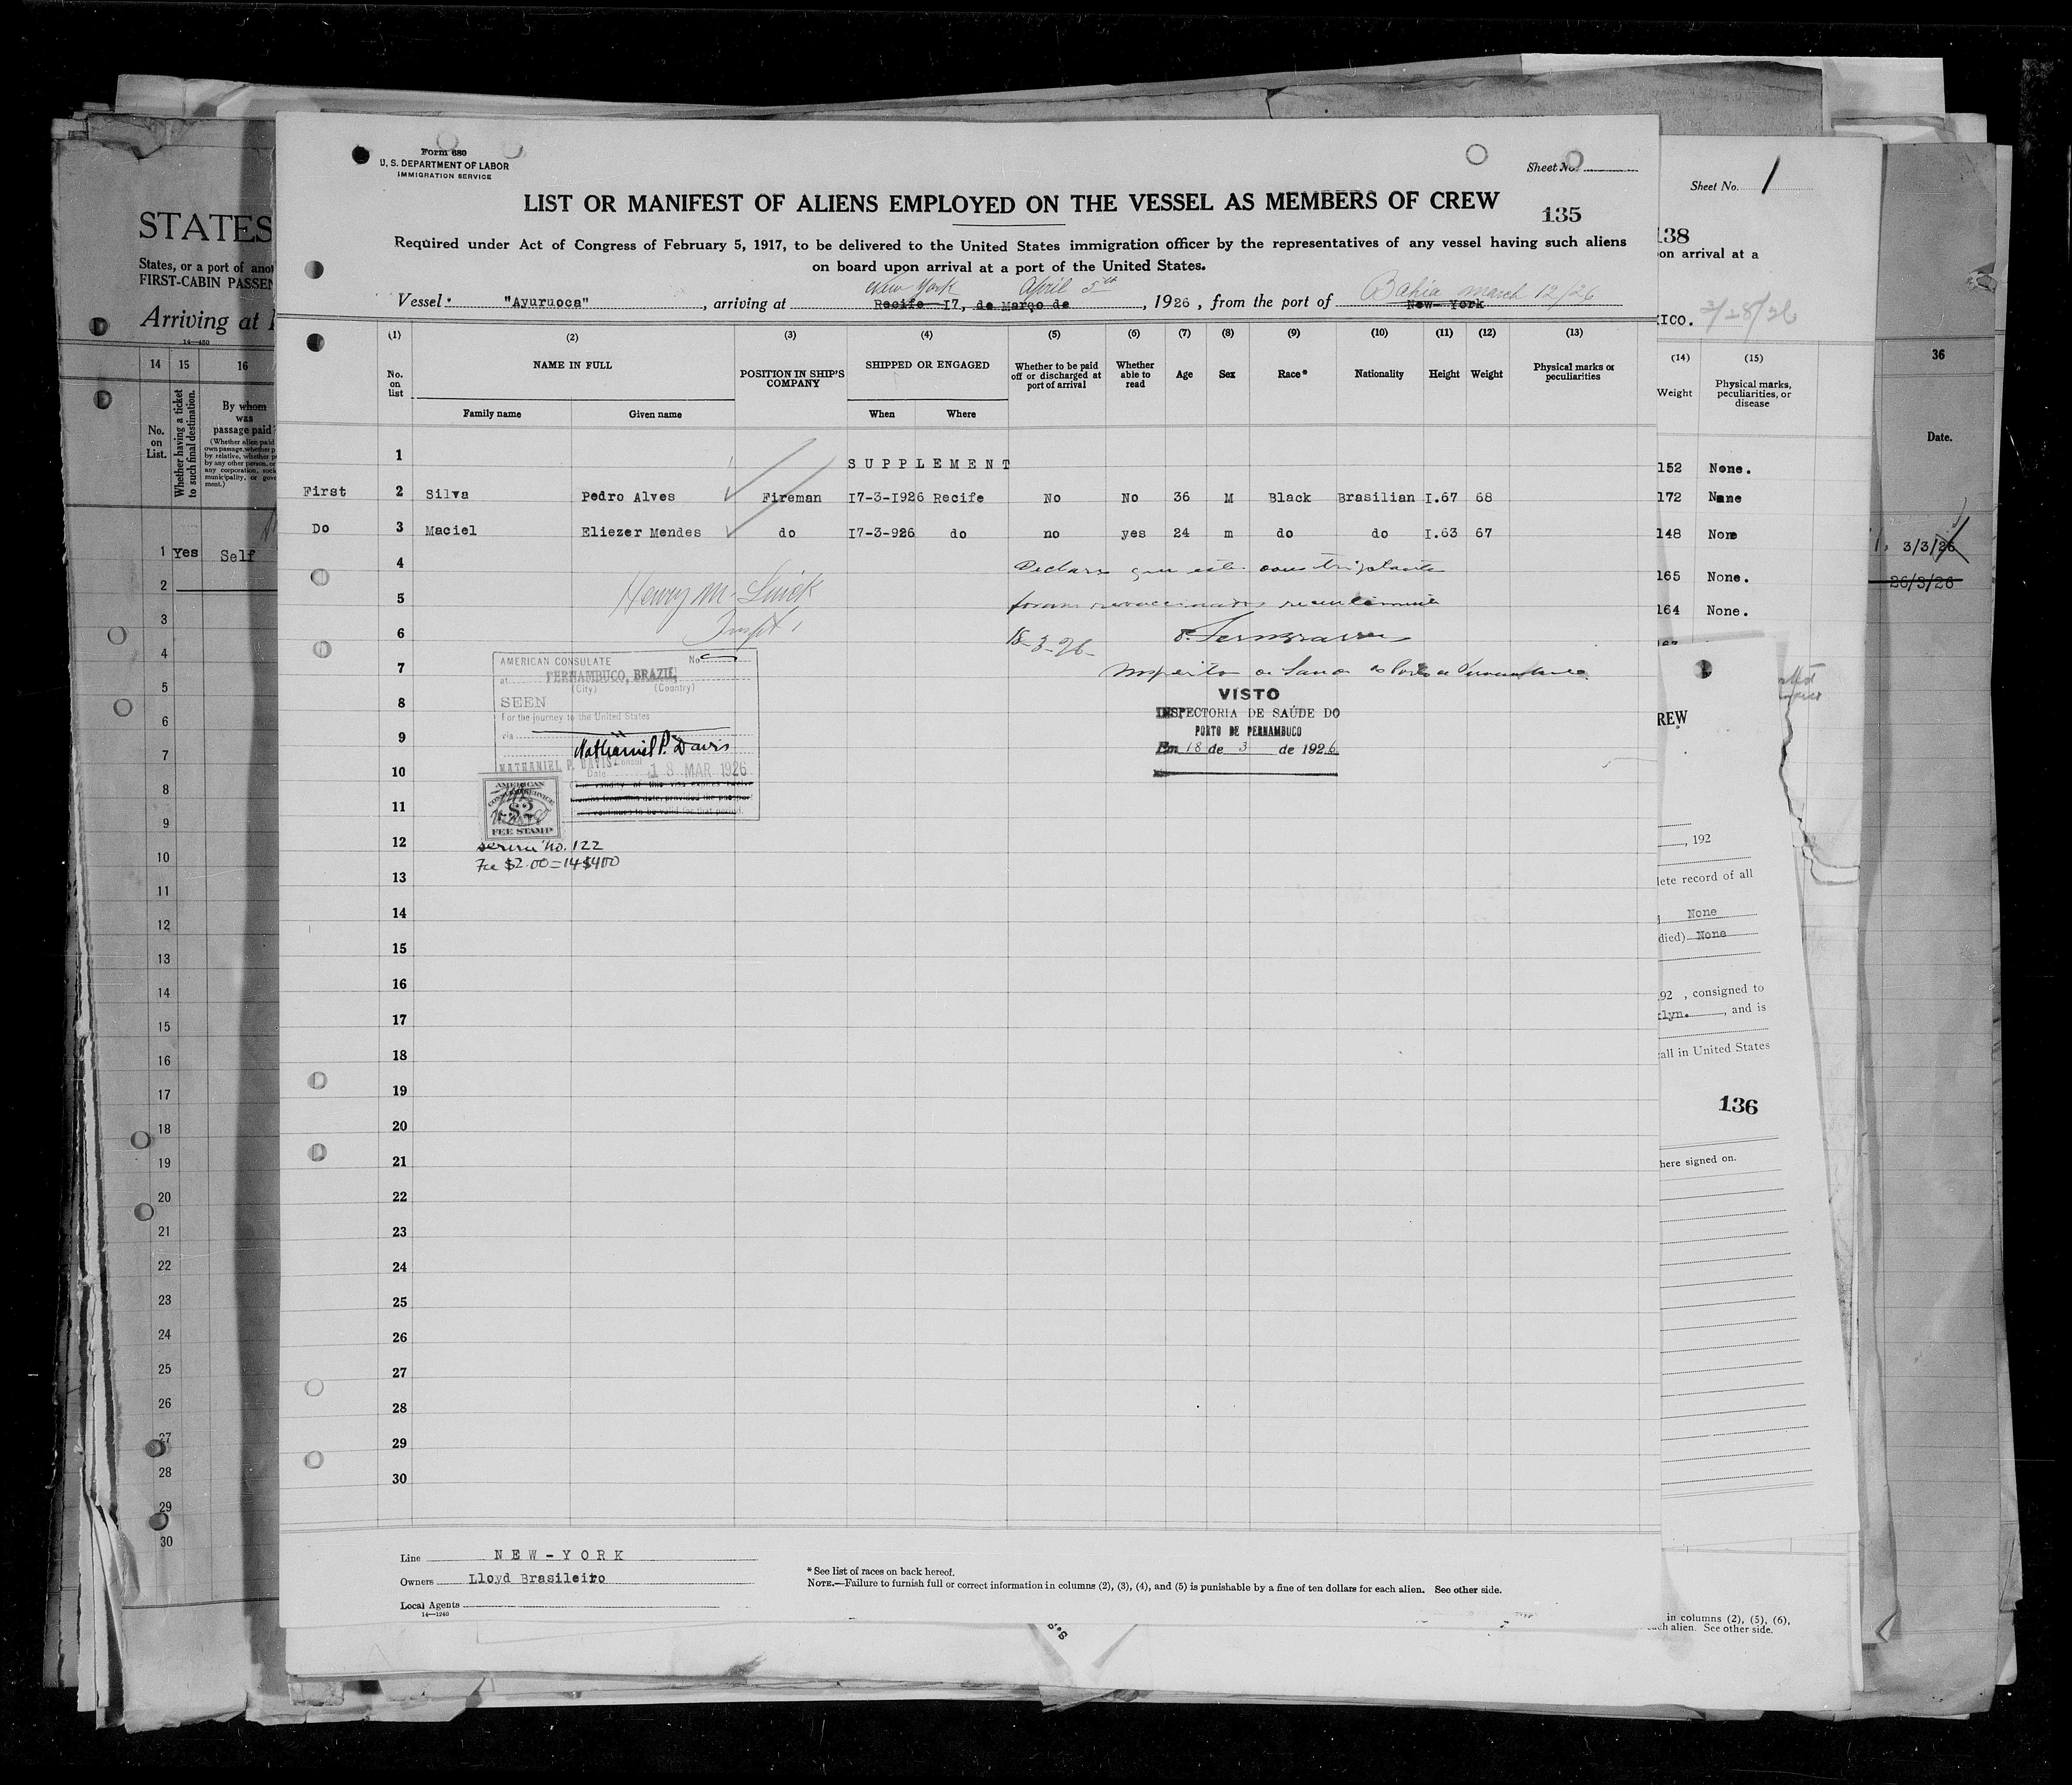 Form 680
U. S. DEPARTMENT OF LABOR
IMMIGRATION SERVICE
Sheet No.
LIST OR MANIFEST OF ALIENS EMPLOYED ON THE VESSEL AS MEMBERS OF CREW
135
Required under Act of Congress of February 5, 1917, to be delivered to the United States immigration officer by the representatives of any vessel having such aliens
on board upon arrival at a port of the United States.
New York April 5th Bahia March 12/26
Vessel: "Ayuruoca", arriving at Recife 17, de Março de, 1926, from the port of New-York
(1) (2) (3) (4) (5) (6) (7) (8) (9) (10) (11) (12) (13)
No. on list
NAME IN FULL
Family name
Given name
POSITION IN SHIP'S COMPANY
SHIPPED OR ENGAGED
When
Where
Whether to be paid off or discharged at port of arrival
Whether able to read
Age
Sex
Race*
Nationality
Height
Weight
Physical marks or peculiarities
1 SUPPLEMENT
First 2 Silva Pedro Alves Fireman I7-3-I926 Recife No No 36 M Black Brasilian I.67 68
Do 3 Maciel Eliezer Mendes do I7-3-926 do no yes 24 m do do I.63 67
4
5 Henry M.
6 18-3-26-
7
8
9
10
11
12
13
14
15
16
17
18
19
20
21
22
23
24
25
26
27
28
29
30
AMERICAN CONSULATE No.
at PERNAMBUCO, BRAZIL
(City) (Country)
SEEN
For the journey to the United States
via
Nathaniel P. Davis
NATHANIEL P. DAVIS Consul
Date 18 MAR 1926
The validity of this visa expires twelve
months from this date, provided the passport
continues to be valid for that period.
AMERICAN
CONSULAR SERVICE
$2
FEE STAMP
Service No. 122
Fee $2.00=14$400
VISTO
INSPECTORIA DE SAÚDE DO
PORTO DE PERNAMBUCO
Em 18 de 3 de 1926
Line NEW-YORK
Owners Lloyd Brasileiro
Local Agents
14—1240
*See list of races on back hereof.
NOTE.—Failure to furnish full or correct information in columns (2), (3), (4), and (5) is punishable by a fine of ten dollars for each alien. See other side.
STATES
States, or a port of
FIRST-CABIN
Arriving at
14 15 16
No. on List.
Whether having a ticket to such final destination.
By whom was passage paid?
1 Yes Self
2
3
4
5
6
7
8
9
10
11
12
13
14
15
16
17
18
19
20
21
22
23
24
25
26
27
28
29
30
Sheet No. 1
138
on arrival at a
(14) (15)
Weight
Physical marks, peculiarities, or disease
152 None.
172 None
148 None
165 None.
164 None.
36
Date.
3/3/26
26/3/26
, 192
record of all
None
died) None
, consigned to
, and is
in United States
136
signed on.
in columns (2), (5), (6),
alien. See other side.